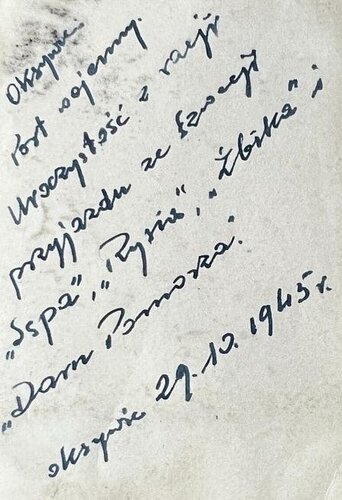 Oksywie.
Port wojenny.
Uroczystość z racji
przyjazdu ze Szwecji
„Sępa”, „Rysia”, „Żbika” i
„Daru Pomorza.”
Oksywie 29.10.1945 r.